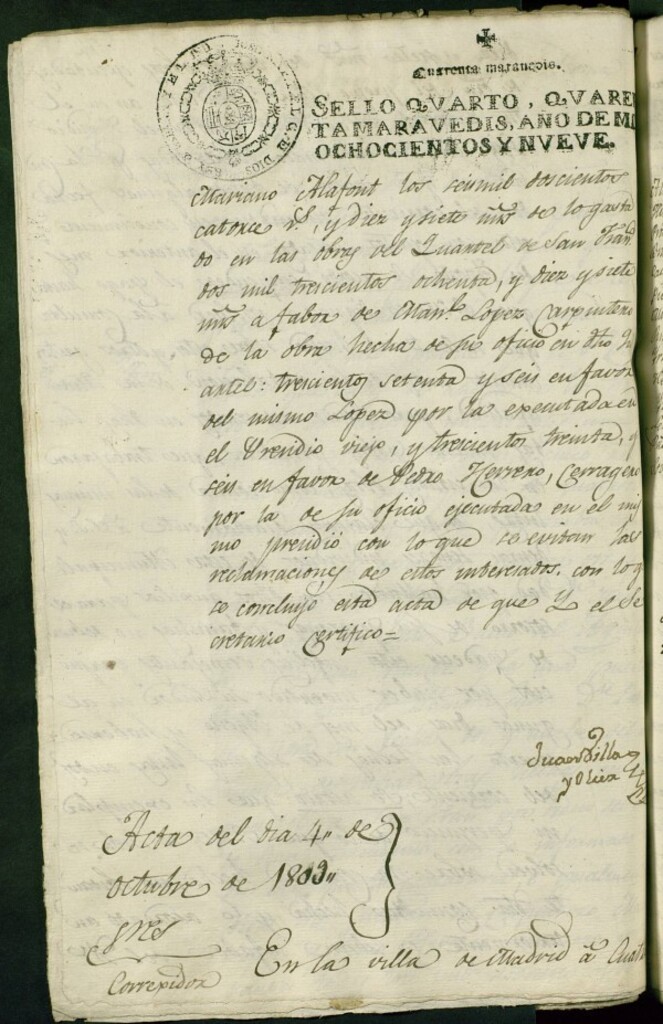 Quarenta maravedis.
SELLO QVARTO, QVAREN
TA MARAVEDIS, AÑO DE MIL
OCHOCIENTOS Y NVEVE.
Mariano Alafont los seis mil doscientos
catorce rs., y diez y siete mrs de lo gasta
do en las obras del Quartel de San Fran.
dos mil trescientos ochenta, y diez y siete
mrs a fabor de Manl. Lopez Carpintero
de la obra hecha de su oficio en dho Qu
artel: trescientos setenta y seis en favor
del mismo Lopez por la executada en
el Prendio viejo, y trescientos treinta, y
seis en favor de Pedro Herrero, Cerragero
por la de su oficio ejecutada en el mis
mo prendio con lo que se evitan las
reclamaciones de estos interesados. con lo q
se concluyó esta acta de que Yo el Se
cretario Certifico=
Juan Villa
y Olier
Acta del dia 4,, de
Octubre de 1809,,
Sres
Corregidor
En la villa de Madrid á Cuatro